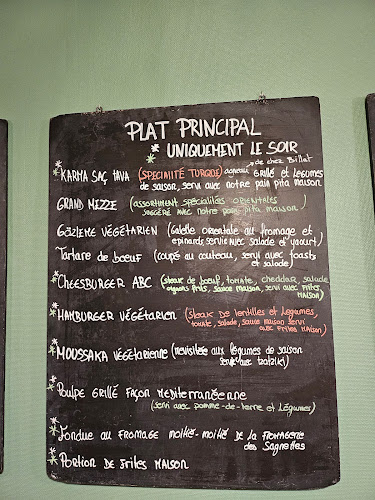 PLAT PRINCIPAL
* UNIQUEMENT LE SOIR
de chez Billat
* KARMA SAÇ TAVA (SPECIALITÉ TURQUE) agneau GRILLÉ ET LEGUMES
de saison, servi avec notre pain pita maison
GRAND MEZZE (ASSORTIMENT SPÉCIALITÉS ORIENTALES
SUGGÉRÉ AVEC notre pain pita maison)
GÖZLEME VÉGÉTARIEN (Galette orientale au fromage et
épinards, servie avec salade et yaourt)
Tartare de boeuf (coupé au couteau, servi avec toasts
et salade)
* CHEESBURGER ABC (steak de boeuf, tomate, cheddar, salade
oignons frits, sauce maison, servi avec frites
MAISON)
* HAMBURGER VÉGÉTARIEN (STEAK DE LENTILLES ET LÉGUMES,
tomate, salade, sauce maison servi
avec frites MAISON)
* MOUSSAKA VÉGÉTARIENNE (revisitée aux légumes de saison
servi avec tzatziki)
* Poulpe GRILLÉ FAÇON MEDITERRANÉENNE
(servi avec pomme-de-terre et légumes)
* Fondue au FROMAGE moitié-moitié DE LA FROMAGERIE
des Sagnettes
* PORTION DE frites MAISON